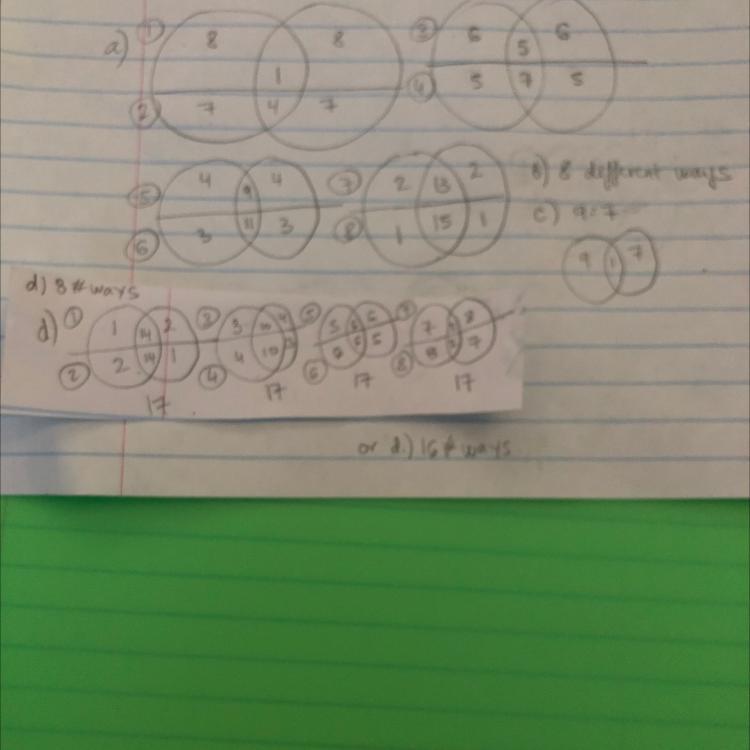 a) ① 8 8 ③ 6 5 6
1
② 7 4 7 ④ 5 7 5
⑤ 4 9 4 ⑦ 2 13 2
⑥ 3 11 3 ⑧ 1 15 1
b) 8 different ways
c) 9:7
9 1 7
d) 8 # ways
d) ① 1 14 2 ③ 3 10 4 ⑤ 5 6 7 8
② 2 14 1 ④ 4 10 ⑥ 5 ⑧ 7
17 17 17 17
or d.) 16 # ways